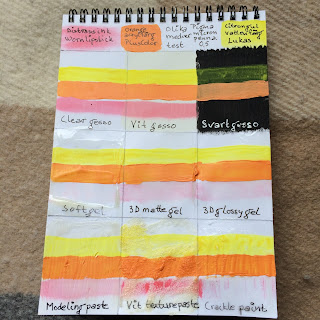 Distress ink
Worn lipstick
Orange
PlusColor
Olika
medier
test
Pigma
micron
penna
0,5
Citrongul
vattenfärg
Lukas
Clear gesso
Vit gesso
Svart gesso
Soft gel
3D matte gel
3D glossy gel
Modeling paste
Vit texturepaste
Crackle paint